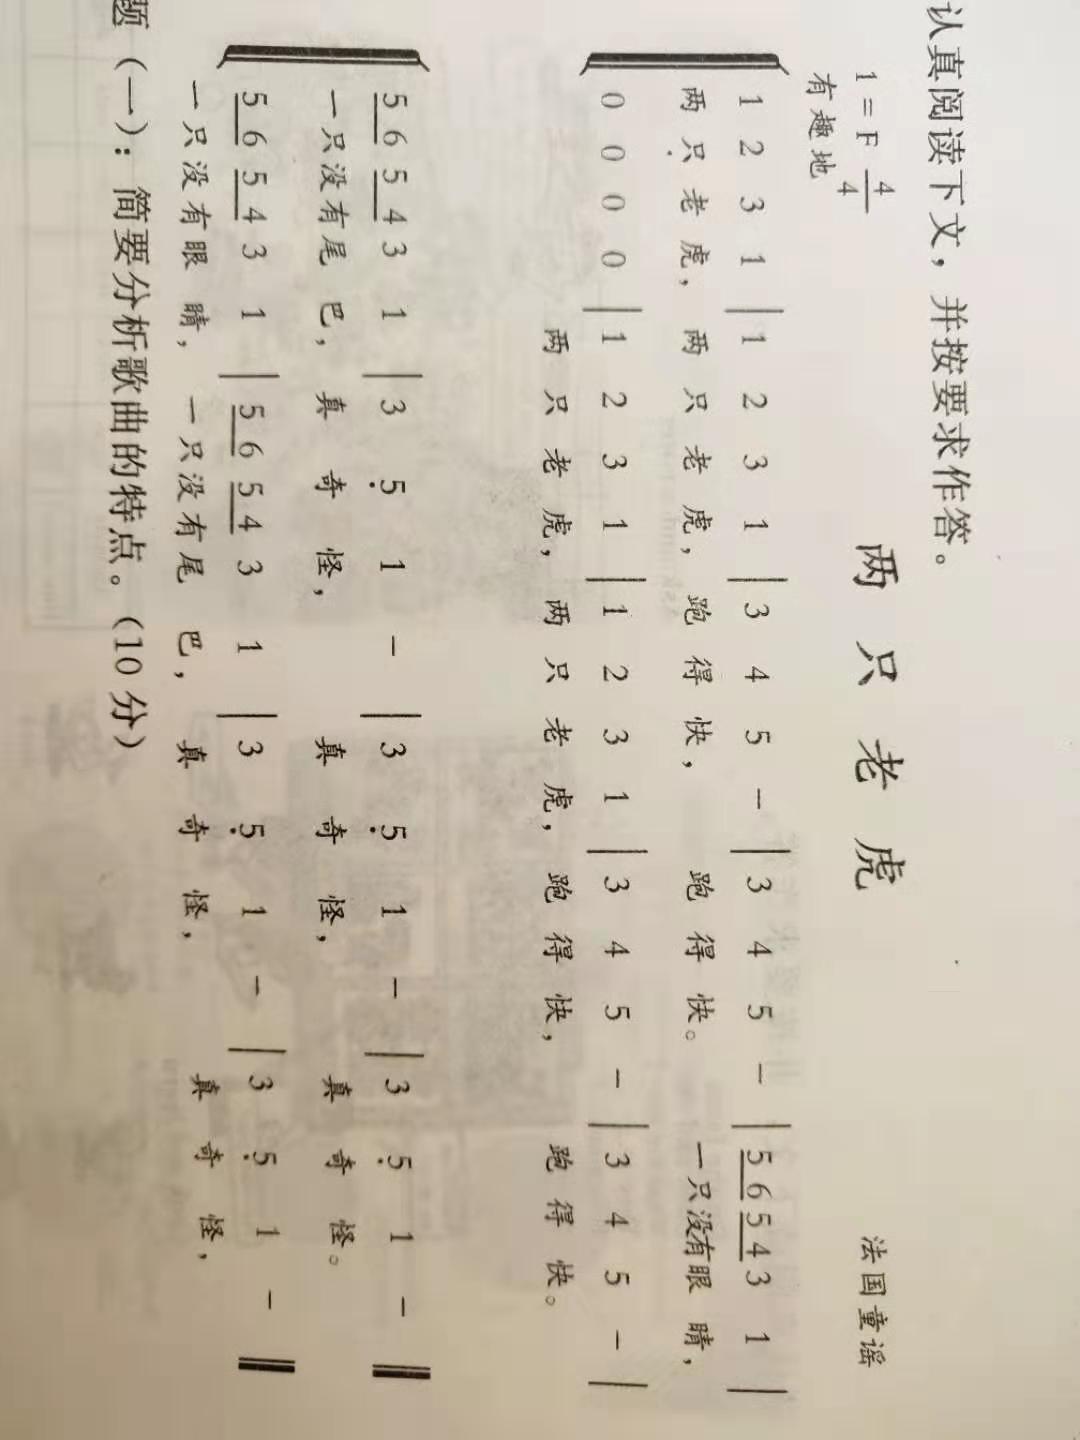 认真阅读下文，并按要求作答。
两只老虎
1 = F 4/4
有趣地
法国童谣
1 2 3 1 | 1 2 3 1 | 3 4 5 － | 3 4 5 － | 5 6 5 4 3 1 |
两只老虎，两只老虎，跑得快，跑得快。一只没有眼睛，
0 0 0 0 | 1 2 3 1 | 1 2 3 1 | 3 4 5 － | 3 4 5 － |
两只老虎，两只老虎，跑得快，跑得快。
5 6 5 4 3 1 | 3 5̣ 1 － | 3 5̣ 1 － | 3 5̣ 1 － ‖
一只没有尾巴，真奇怪，真奇怪，真奇怪。
5 6 5 4 3 1 | 5 6 5 4 3 1 | 3 5̣ 1 － | 3 5̣ 1 － ‖
一只没有眼睛，一只没有尾巴，真奇怪，真奇怪，
题（一）：简要分析歌曲的特点。（10 分）